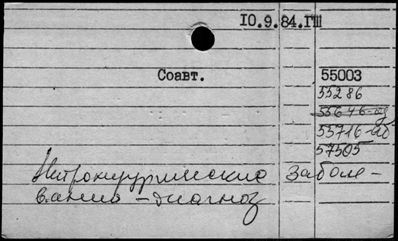 10.9.84.ГШ
Соавт. 55003
55286
55646-ад
55716-аб
57505
Нейрохирургические заболе-
вания - диагноз